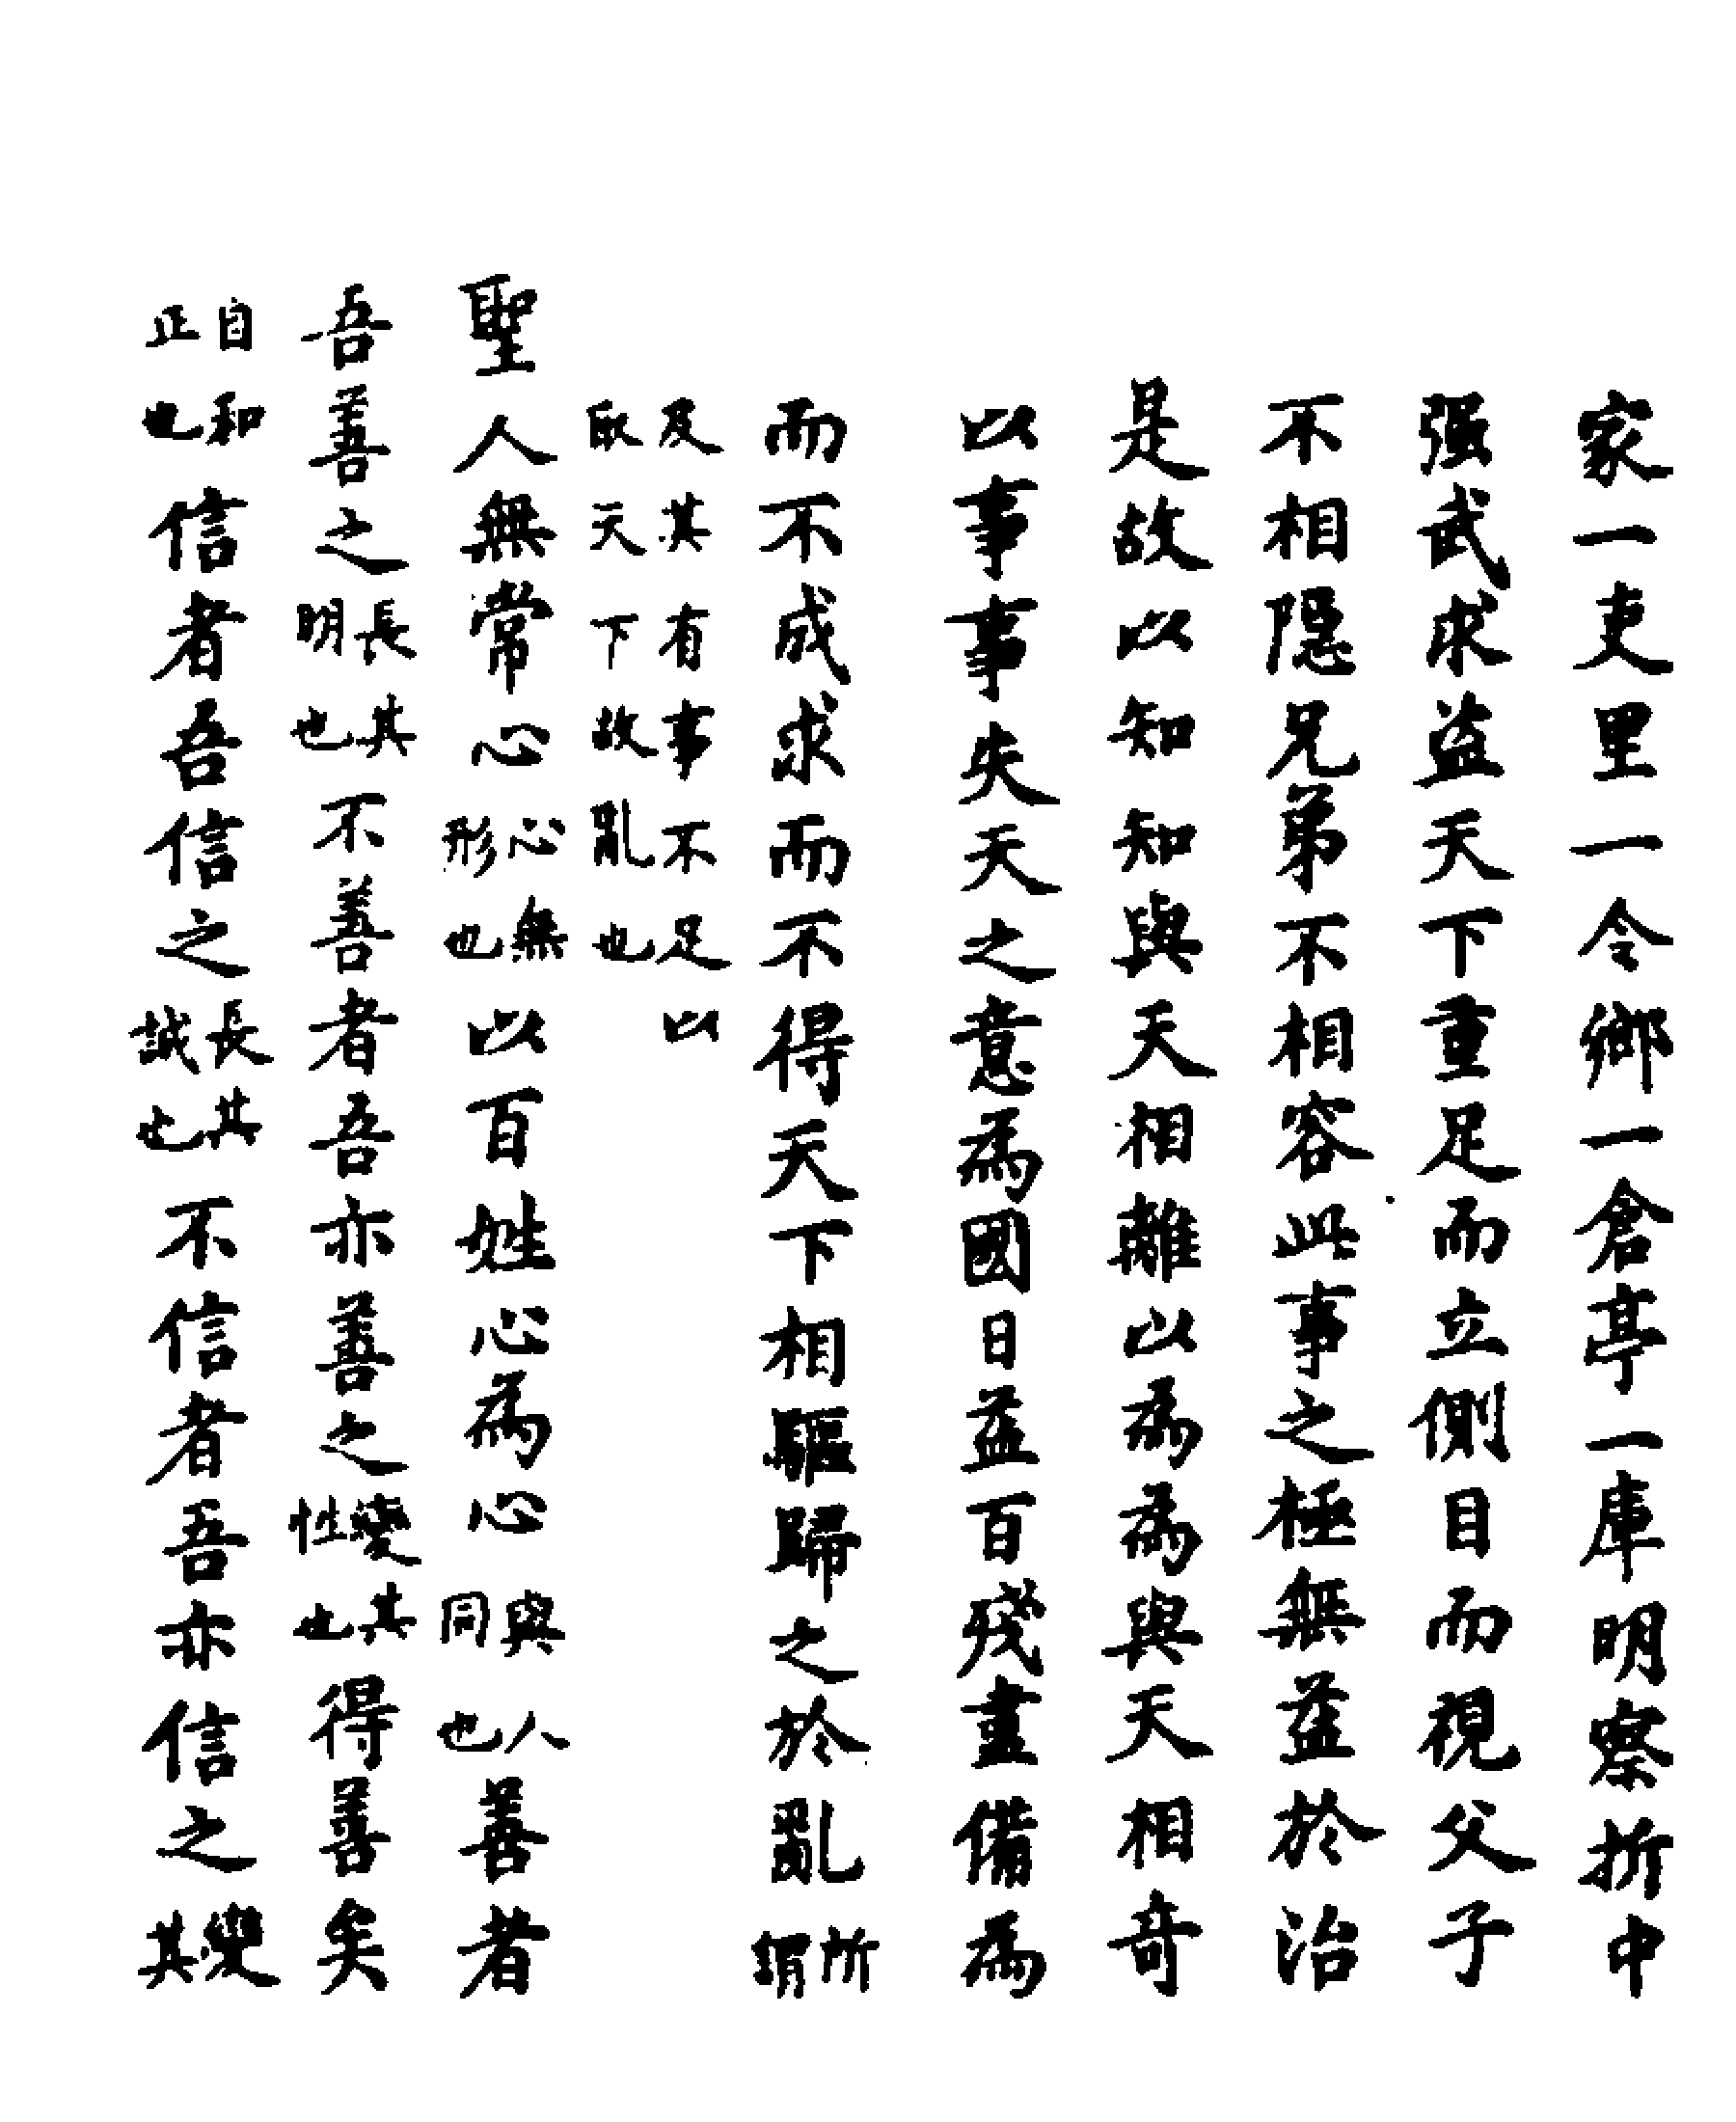 家一吏里一令鄉一倉亭一庫明察折中
强武求益天下重足而立側目而視父子
不相隱兄弟不相容此事之極無益於治
是故以知知與天相離以為為與天相奇
以事事失天之意為國日益百殘晝備為
而不成求而不得天下相驅歸之於亂所謂
及其有事不足以取天下故亂也
聖人無常心心無形也以百姓心為心與人同也善者
吾善之長其明也不善者吾亦善之變其性也得善矣
自和正也信者吾信之長其誠也不信者吾亦信之變其